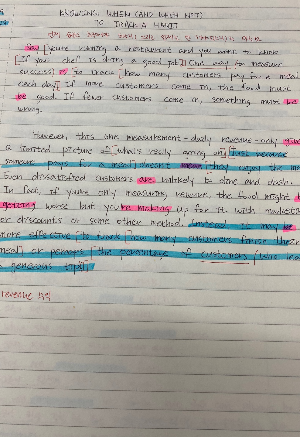 KNOWING WHEN (AND WHEN NOT)
TO TRUST A
Say you're running a restaurant and you want to know
if your chef is doing a good job. One way to measure
success is to track how many customers pay for a meal
each day. If more customers come in, the food must
be good. If fewer customers come in, something must be
wrong.
However, this one measurement - daily revenue - only gives
a limited picture of what's really going on. Just because
someone pays for a meal doesn't mean they enjoy the
Even dissatisfied customers are unlikely to dine and dash.
In fact, if you're only measuring revenue, the food might be
getting worse but you're making up for it with marketing
or discounts or some other method. Instead, it may be
more effective to track how many customers finish their
meal, or perhaps the percentage of customers who leave
a generous tip.
revenue